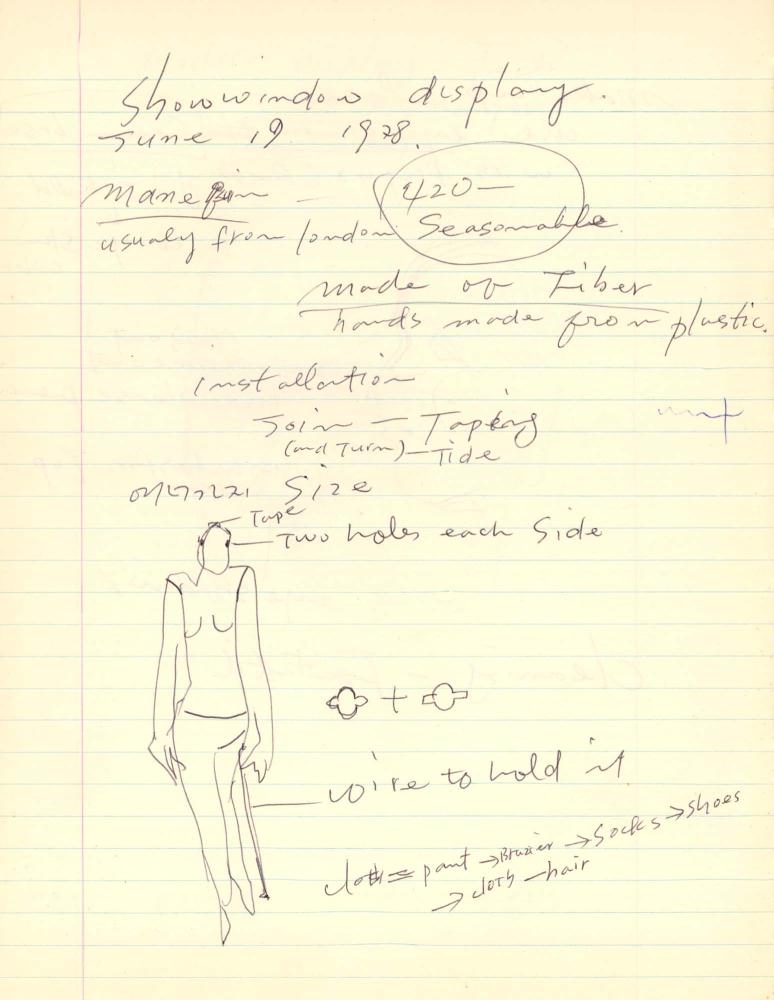 Showwindow display.
June 19 1978.
manequin — 420—
usualy from london Seasonable.
made of Fiber
hands made from plastic.
installation
Join — Taping
(and Turn) — Tide
Size
Tape
Two holes each side
+
wire to hold it
cloth = pant → Brazier → Socks → shoes
→ cloth — hair